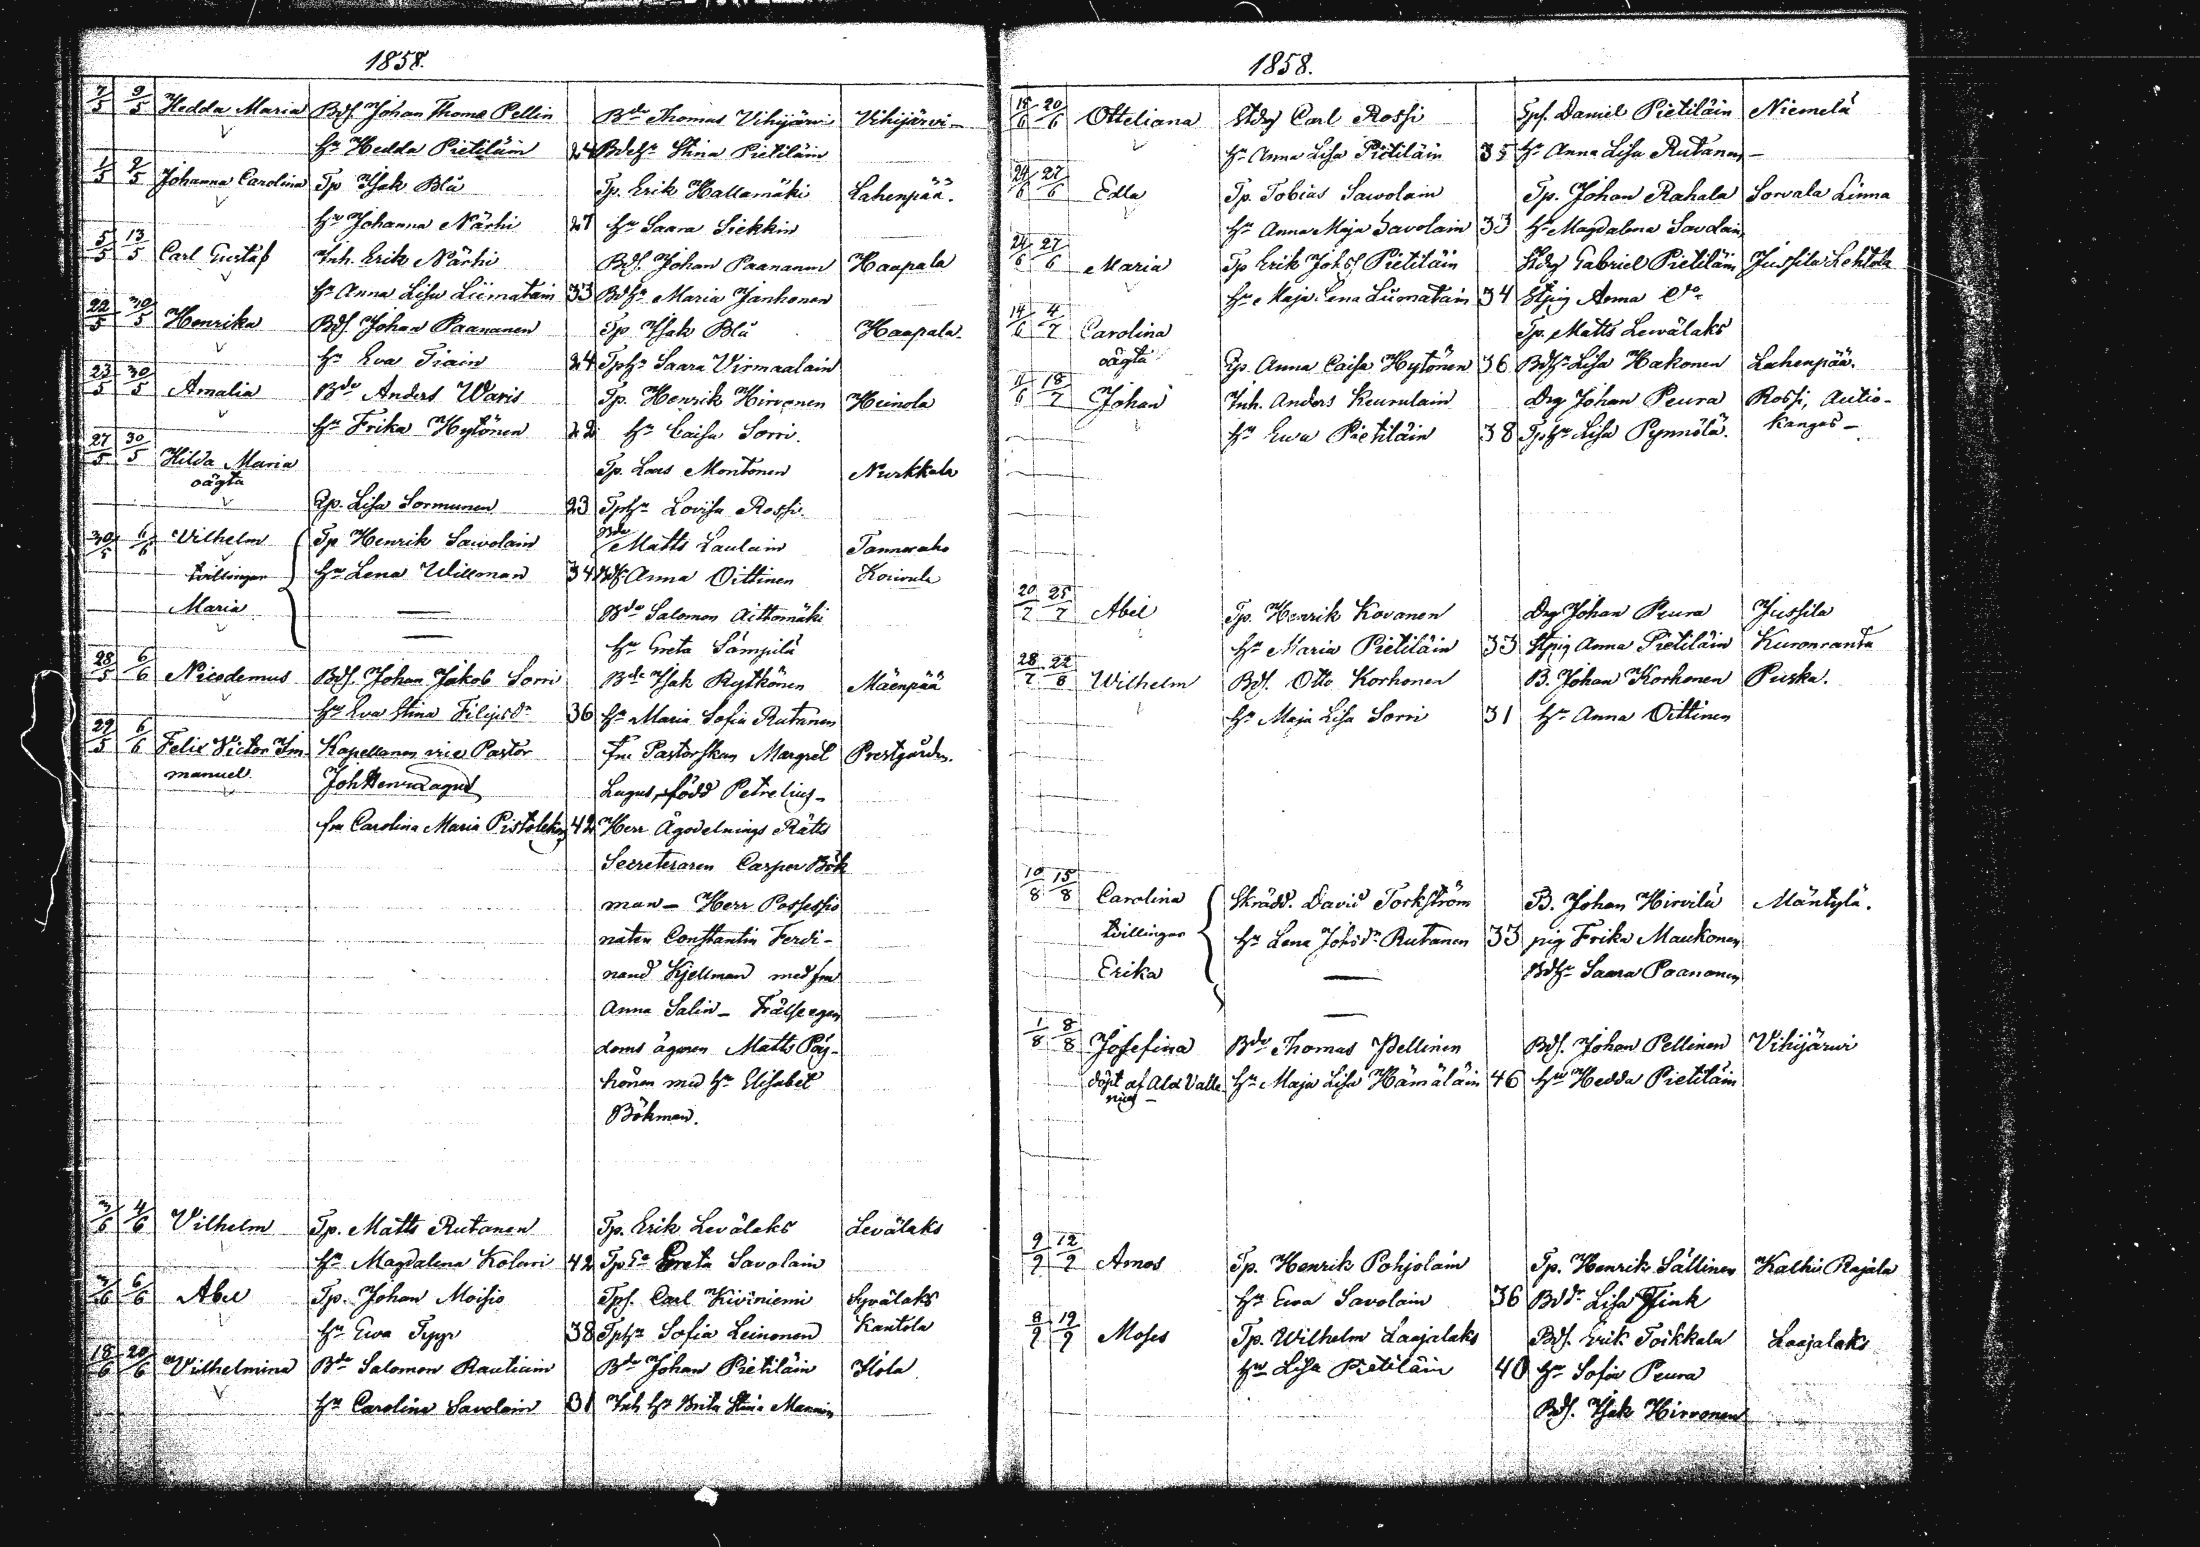 1858.
7/5 9/5 Hedda Maria Bdf. Johan Thoms Pellin Bde Thomas Vihijärvi Vihijärvi –
Hu Hedda Pietiläin 24 Bdehu Stina Pietiläin
1/5 2/5 Johanna Carolina Tp Isak Blå Tp. Erik Hallamäki Lahenpää.
Hu Johanna Närhi 27 Hu Saara Siekkin
5/5 13/5 Carl Gustaf Inh. Erik Närhi Bdf. Johan Paananen Haapala
Hu Anna Lisa Liimatain 33 Bdhu Maria Janhonen
22/5 30/5 Henrika Bdf. Johan Paananen Tp Isak Blå Haapala.
Hu Eva Tiain 24 Tphu Saara Virmaalain
23/5 30/5 Amalia Bde Anders Waris Tp. Henrik Hirvonen Heinola
Hu Frika Hytönen 22 Hu Caisa Sorri.
27/5 30/5 Hilda Maria Tp. Lars Montonen Nurkkala
oägta
Qp. Lisa Sormunen 23 Tphu Lovisa Rossi.
30/5 6/6 Vilhelm Tp Henrik Sawolain Bde Matts Laulain Tanneraho
tvillingar Hu Lena Willman 34 Bdhu Anna Oittinen Koivula
Maria Bde Salomon Aittomäki
Hu Greta Sämpilä
28/5 6/6 Nicodemus Bdf. Johan Jakob Sorri Bde Isak Rytkönen Mäenpää
Hu Eva Stina Filipsdr 36 Hu Maria Sofia Rutanen
29/5 6/6 Felix Victor Im Kapellanen vice Pastor fru Pastorskan Margret Prestgården.
manuel. Joh Henr Lagus Lagus, född Petrelius –
fru Carolina Maria Pistolekors 42 Herr Ägodelnings Rätts
Secreteraren Casper Bök
man – Herr Possessio
naten Constantin Ferdi-
nand Kjellman med fru
Anna Salin – Frälse egen
doms ägaren Matts Pöy-
hönen med Hu Elisabet
Böhman.
3/6 4/6 Vilhelm Tp. Matts Rutanen Tp. Erik Levälaks Levälaks
Hu Magdalena Kolari 42 Greta Savolain
6/6 Abel Tp. Johan Moisio Tpf. Carl Kiviniemi Syvälaks
Hu Ewa Typp 38 Tphu Sofia Leinonen Kantola
18/6 20/6 Wilhelmina Bde Salomon Rautiain Bde Johan Pietiläin Ilola
Hu Carolina Savolain 31 Inh Hu Brita Stina Mannin
1858.
18/6 20/6 Otteliana Carl Rossi Tpf. Daniel Pietiläin Niemelä
Hu Anna Lisa Pietiläin 35 Hu Anna Lisa Rutanen –
24/6 27/6 Edla Tp. Tobias Sawolain Tp. Johan Rahala Sorvala Linna
Hu Anna Maja Savolain 33 Hu Magdalena Savolain
24/6 27/6 Maria Tp Erik Johsf Pietiläin Gabriel Pietiläin Jussila Lehtola
Hu Maja Lena Liimatain 34 Stpig Anna do
14/6 4/7 Carolina Tp. Matts Lewälaks
oägta Qp. Anna Caisa Hytönen 36 Bdhu Lisa Hakonen Lahenpää.
11/6 18/7 Johan Inh. Anders Keurulain Drg Johan Peura Rossi, Autio-
Hu Ewa Pietiläin 38 Tphu Lisa Pynnölä. kangas –
20/7 25/7 Abel Tp. Henrik Kovanen Drg Johan Peura Jussila
Hu Maria Pietiläin 33 Stpig Anna Pietiläin Kuronranta
28/7 22/8 Wilhelm Bdf. Otto Korhonen B. Johan Korhonen Puska.
Hu Maja Lisa Sorri 31 Hu Anna Oittinen
10/8 15/8 Carolina Skrädd. David Torkström B. Johan Hirvilä Mäntylä.
tvillingar Hu Lena Johsdr Rutanen 33 pig Frika Maukonen
Erika Bdhu Saara Paananen
1/8 8/8 Josefina Bde Thomas Pellinen Bdf. Johan Pellinen Vihijärvi
döpt af Ald Valle Hu Maja Lisa Hämäläin 46 Hu Hedda Pietiläin
nius –
9/9 12/9 Amos Tp. Henrik Pohjolain Tp. Henrik Sällinen Kalhi Rajala
Hu Ewa Savolain 36 Bddr Lisa Fink
8/9 19/9 Moses Tp. Wilhelm Laajalaks Bdf. Erik Toikkala Laajalaks
Hu Lisa Pietiläin 40 Hu Sofia Peura
Bdf. Isak Hirvonen